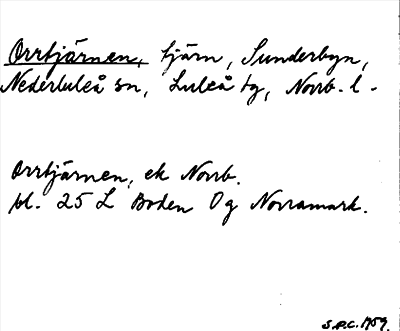 Orrtjärnen, tjärn, Sunderbyn,
Nederluleå sn, Luleå tg, Norrb. l.
Orrtjärnen, ek Norrb.
bl. 25 L Boden Og Norramark.
S.P.C. 1959.